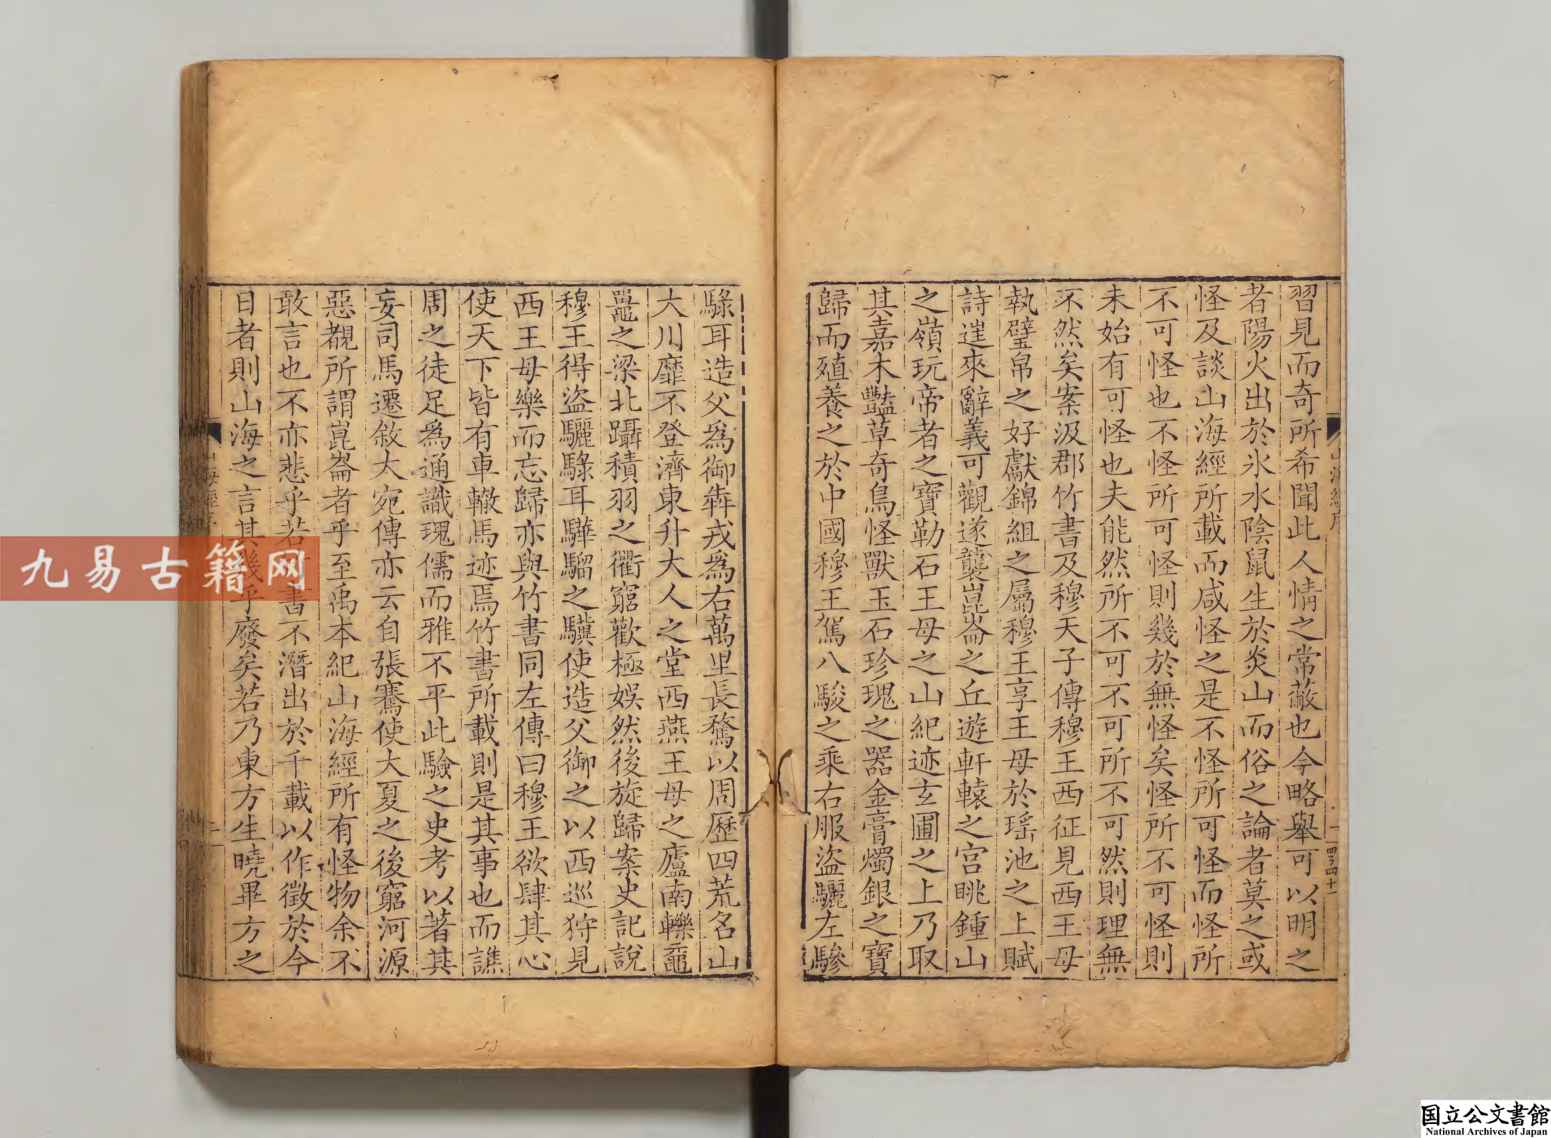 習見而奇所希聞此人情之常蔽也今略舉可以明之
者陽火出於氷水陰鼠生於炎山而俗之論者莫之或
怪及談山海經所載而咸怪之是不怪所可怪而怪所
不可怪也不怪所可怪則幾於無怪矣怪所不可怪則
未始有可怪也夫能然所不可不可所不可然則理無
不然矣案汲郡竹書及穆天子傳穆王西征見西王母
執璧帛之好獻錦組之屬穆王享王母於瑤池之上賦
詩往來辭義可觀遂襲崑崙之丘遊軒轅之宮眺鍾山
之嶺玩帝者之寶勒石王母之山紀迹玄圃之上乃取
其嘉木豔草奇鳥怪獸玉石珍瑰之器金膏燭銀之寶
歸而殖養之於中國穆王駕八駿之乘右服盜驪左驂
騄耳造父爲御犇戎爲右萬里長騖以周歷四荒名山
大川靡不登濟東升大人之堂西燕王母之廬南轢黿
鼉之梁北躡積羽之衢窮歡極娛然後旋歸案史記說
穆王得盜驪騄耳驊騮之驥使造父御之以西巡狩見
西王母樂而忘歸亦與竹書同左傳曰穆王欲肆其心
使天下皆有車轍馬迹焉竹書所載則是其事也而譙
周之徒足爲通識瑰儒而雅不平此驗之史考以著其
妄司馬遷敘大宛傳亦云自張騫使大夏之後窮河源
惡覩所謂崑崙者乎至禹本紀山海經所有怪物余不
敢言也不亦悲乎若書不潛出於千載以作徵於今
日者則山海之言其幾乎廢矣若乃東方生曉畢方之
山海經序
九易古籍网
国立公文書館
National Archives of Japan